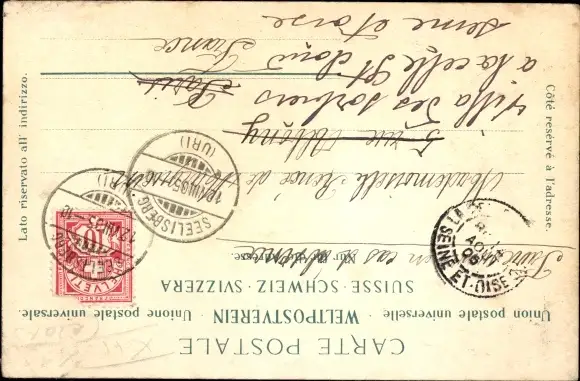 CARTE POSTALE
Union postale universelle. WELTPOSTVEREIN Unione postale universale.
SUISSE · SCHWEIZ · SVIZZERA
Nur für die Adresse.
en cas d'absence
Mademoiselle Renée de
5 rue
Villa des Sorbiers
Paris
a la celle St Cloud
Seine et oise
France
Côté réservé à l'adresse.
Lato riservato all' indirizzo.
SEELISBERG
(URI)
12.VIII.05
HELVETIA
10
SEINE-ET-OISE
AOUT
05